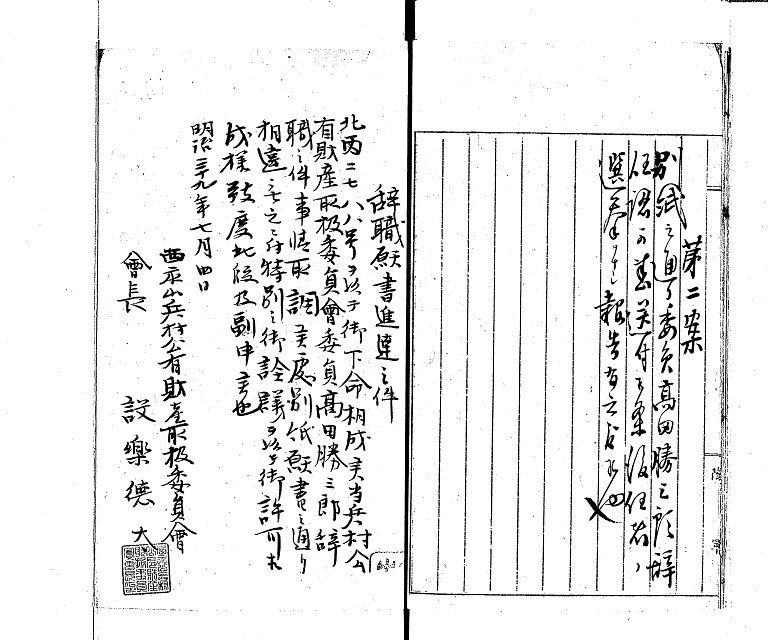 第二案
別紙之通リ委員高田勝三郎辞
任認可書送付候条後任者ノ
選挙
報告
辞職願書進達之件
北丙二七八八号ヲ以テ御下命相成候当兵村公
有財産取扱委員會委員高田勝三郎辞
職之件事情取調候處別紙願書之通リ
相違無之ニ付特別之御詮議ヲ以テ御許可相
成様致度此段及副申候也
明治三十九年七月四日
西永山兵村公有財産取扱委員會
會長 設樂德